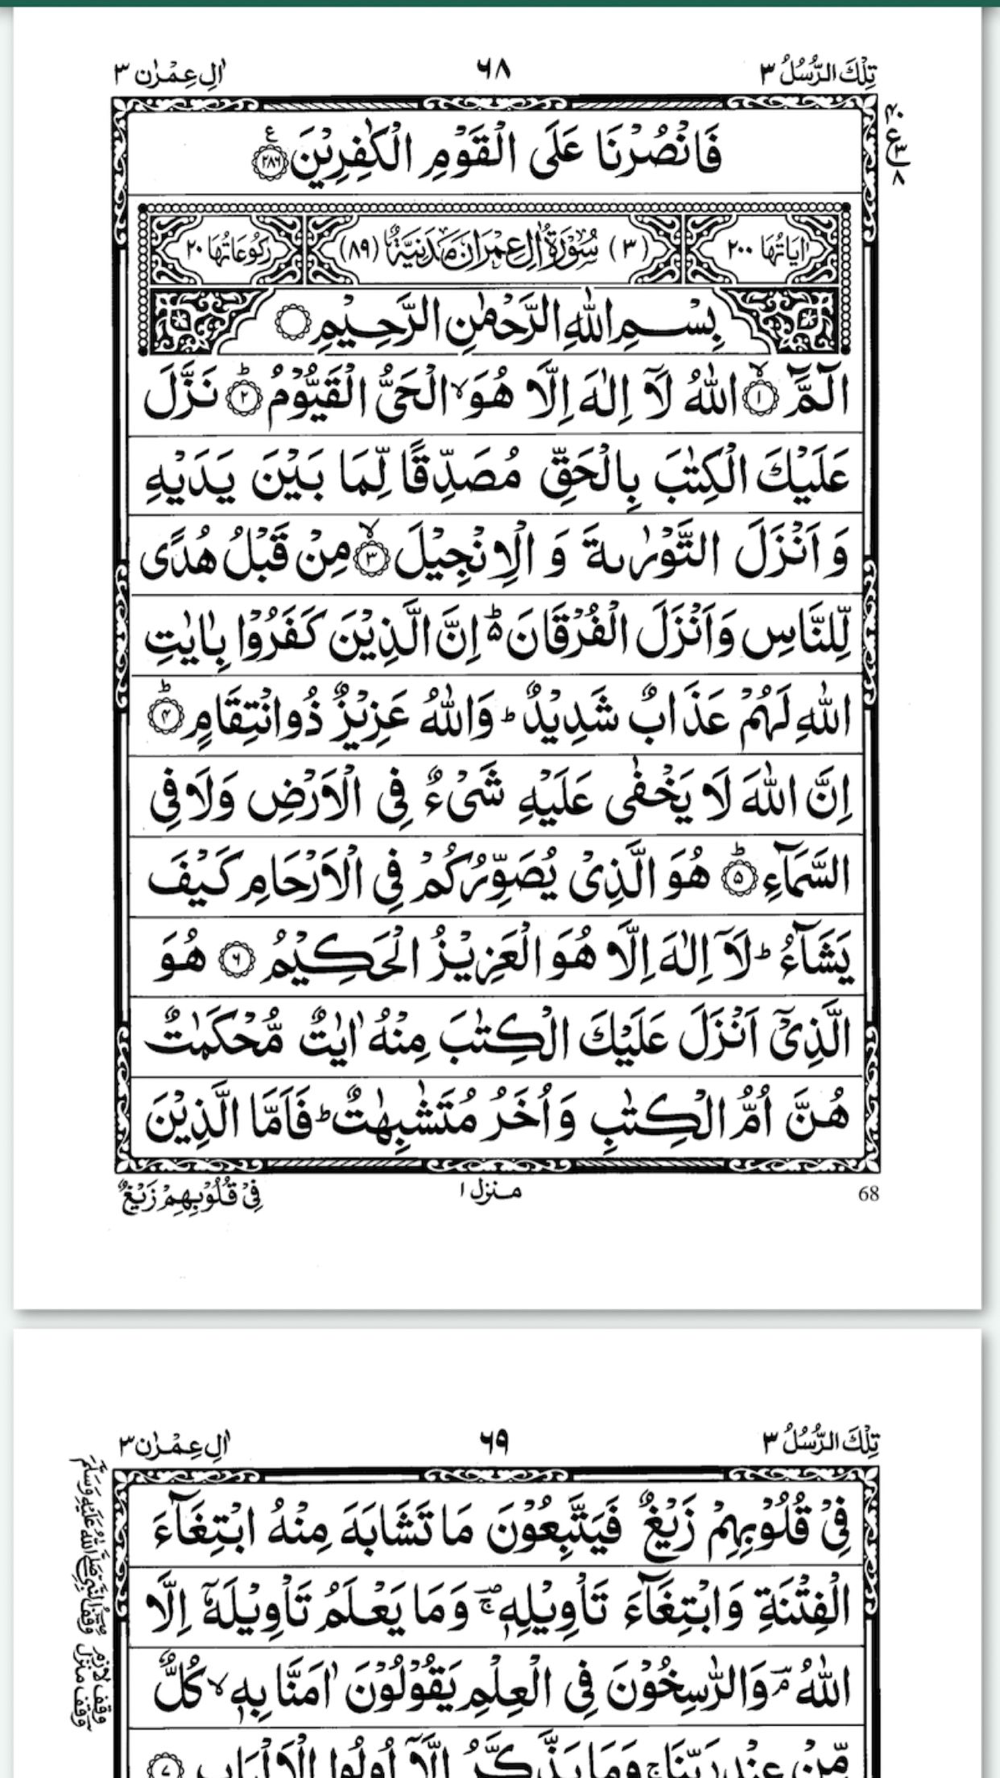 تِلْكَ الرُّسُلُ ٣ ٦٨ اٰلِ عِمْرٰن ٣
٤٠ ع ٣ ٨
فَانْصُرْنَا عَلَى الْقَوْمِ الْكٰفِرِيْنَ ع ٢٨٦
اٰيَاتُهَا ٢٠٠ (٣) سُوْرَةُ اٰلِ عِمْرَان مَدَنِيَّةٌ (٨٩) رُكُوْعَاتُهَا ٢٠
بِسْمِ اللّٰهِ الرَّحْمٰنِ الرَّحِيْمِ
الٓمّٓ ١ۙ اللّٰهُ لَآ اِلٰهَ اِلَّا هُوَ ۙ الْحَىُّ الْقَيُّوْمُ ٢ؕ نَزَّلَ
عَلَيْكَ الْكِتٰبَ بِالْحَقِّ مُصَدِّقًا لِّمَا بَيْنَ يَدَيْهِ
وَ اَنْزَلَ التَّوْرٰىةَ وَ الْاِنْجِيْلَ ٣ۙ مِنْ قَبْلُ هُدًى
لِّلنَّاسِ وَاَنْزَلَ الْفُرْقَانَ ۵ؕ اِنَّ الَّذِيْنَ كَفَرُوْا بِاٰيٰتِ
اللّٰهِ لَهُمْ عَذَابٌ شَدِيْدٌ ؕ وَاللّٰهُ عَزِيْزٌ ذُوانْتِقَامٍ ۴ؕ
اِنَّ اللّٰهَ لَا يَخْفٰى عَلَيْهِ شَىْءٌ فِى الْاَرْضِ وَلَا فِى
السَّمَآءِ ۵ؕ هُوَ الَّذِىْ يُصَوِّرُكُمْ فِى الْاَرْحَامِ كَيْفَ
يَشَآءُ ؕ لَآ اِلٰهَ اِلَّا هُوَ الْعَزِيْزُ الْحَكِيْمُ ۶ هُوَ
الَّذِىْٓ اَنْزَلَ عَلَيْكَ الْكِتٰبَ مِنْهُ اٰيٰتٌ مُّحْكَمٰتٌ
هُنَّ اُمُّ الْكِتٰبِ وَاُخَرُ مُتَشٰبِهٰتٌ ؕ فَاَمَّا الَّذِيْنَ
68 منزل ١ فِىْ قُلُوْبِهِمْ زَيْغٌ
تِلْكَ الرُّسُلُ ٣ ٦٩ اٰلِ عِمْرٰن ٣
فِىْ قُلُوْبِهِمْ زَيْغٌ فَيَتَّبِعُوْنَ مَا تَشَابَهَ مِنْهُ ابْتِغَآءَ
الْفِتْنَةِ وَابْتِغَآءَ تَاْوِيْلِهٖ ۚ وَمَا يَعْلَمُ تَاْوِيْلَهٗٓ اِلَّا
اللّٰهُ ۘ وَالرّٰسِخُوْنَ فِى الْعِلْمِ يَقُوْلُوْنَ اٰمَنَّا بِهٖ ۙ كُلٌّ
مِّنْ عِنْدِ رَبِّنَا ۚ وَمَا يَذَّكَّرُ اِلَّآ اُولُوا الْاَلْبَابِ ۷
وقف النبى صَلَّى اللّٰهُ عَلَيْهِ وَسَلَّمَ
وقف لازم
وقف منزل